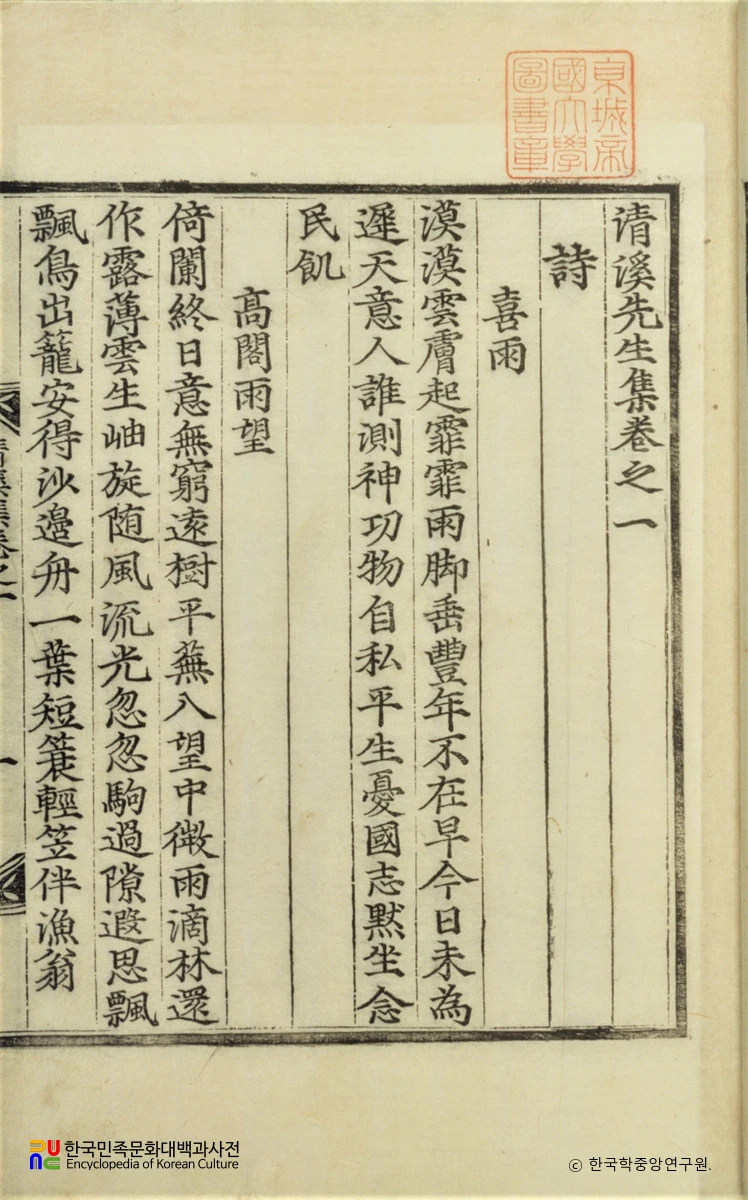 京城帝
國大學
圖書章
清溪先生集卷之一
詩
喜雨
漠漠雲膚起霏霏雨脚垂豐年不在早今日未為
遲天意人誰測神功物自私平生憂國志黙坐念
民飢
高閣雨望
倚闌終日意無窮遠樹平蕪入望中微雨滴林還
作露薄雲生岫旋随風流光忽忽駒過隙遐思飄
飄鳥出籠安得沙邊舟一葉短簑輕笠伴漁翁
清溪集卷之一
一
한국민족문화대백과사전
Encyclopedia of Korean Culture
ⓒ 한국학중앙연구원.